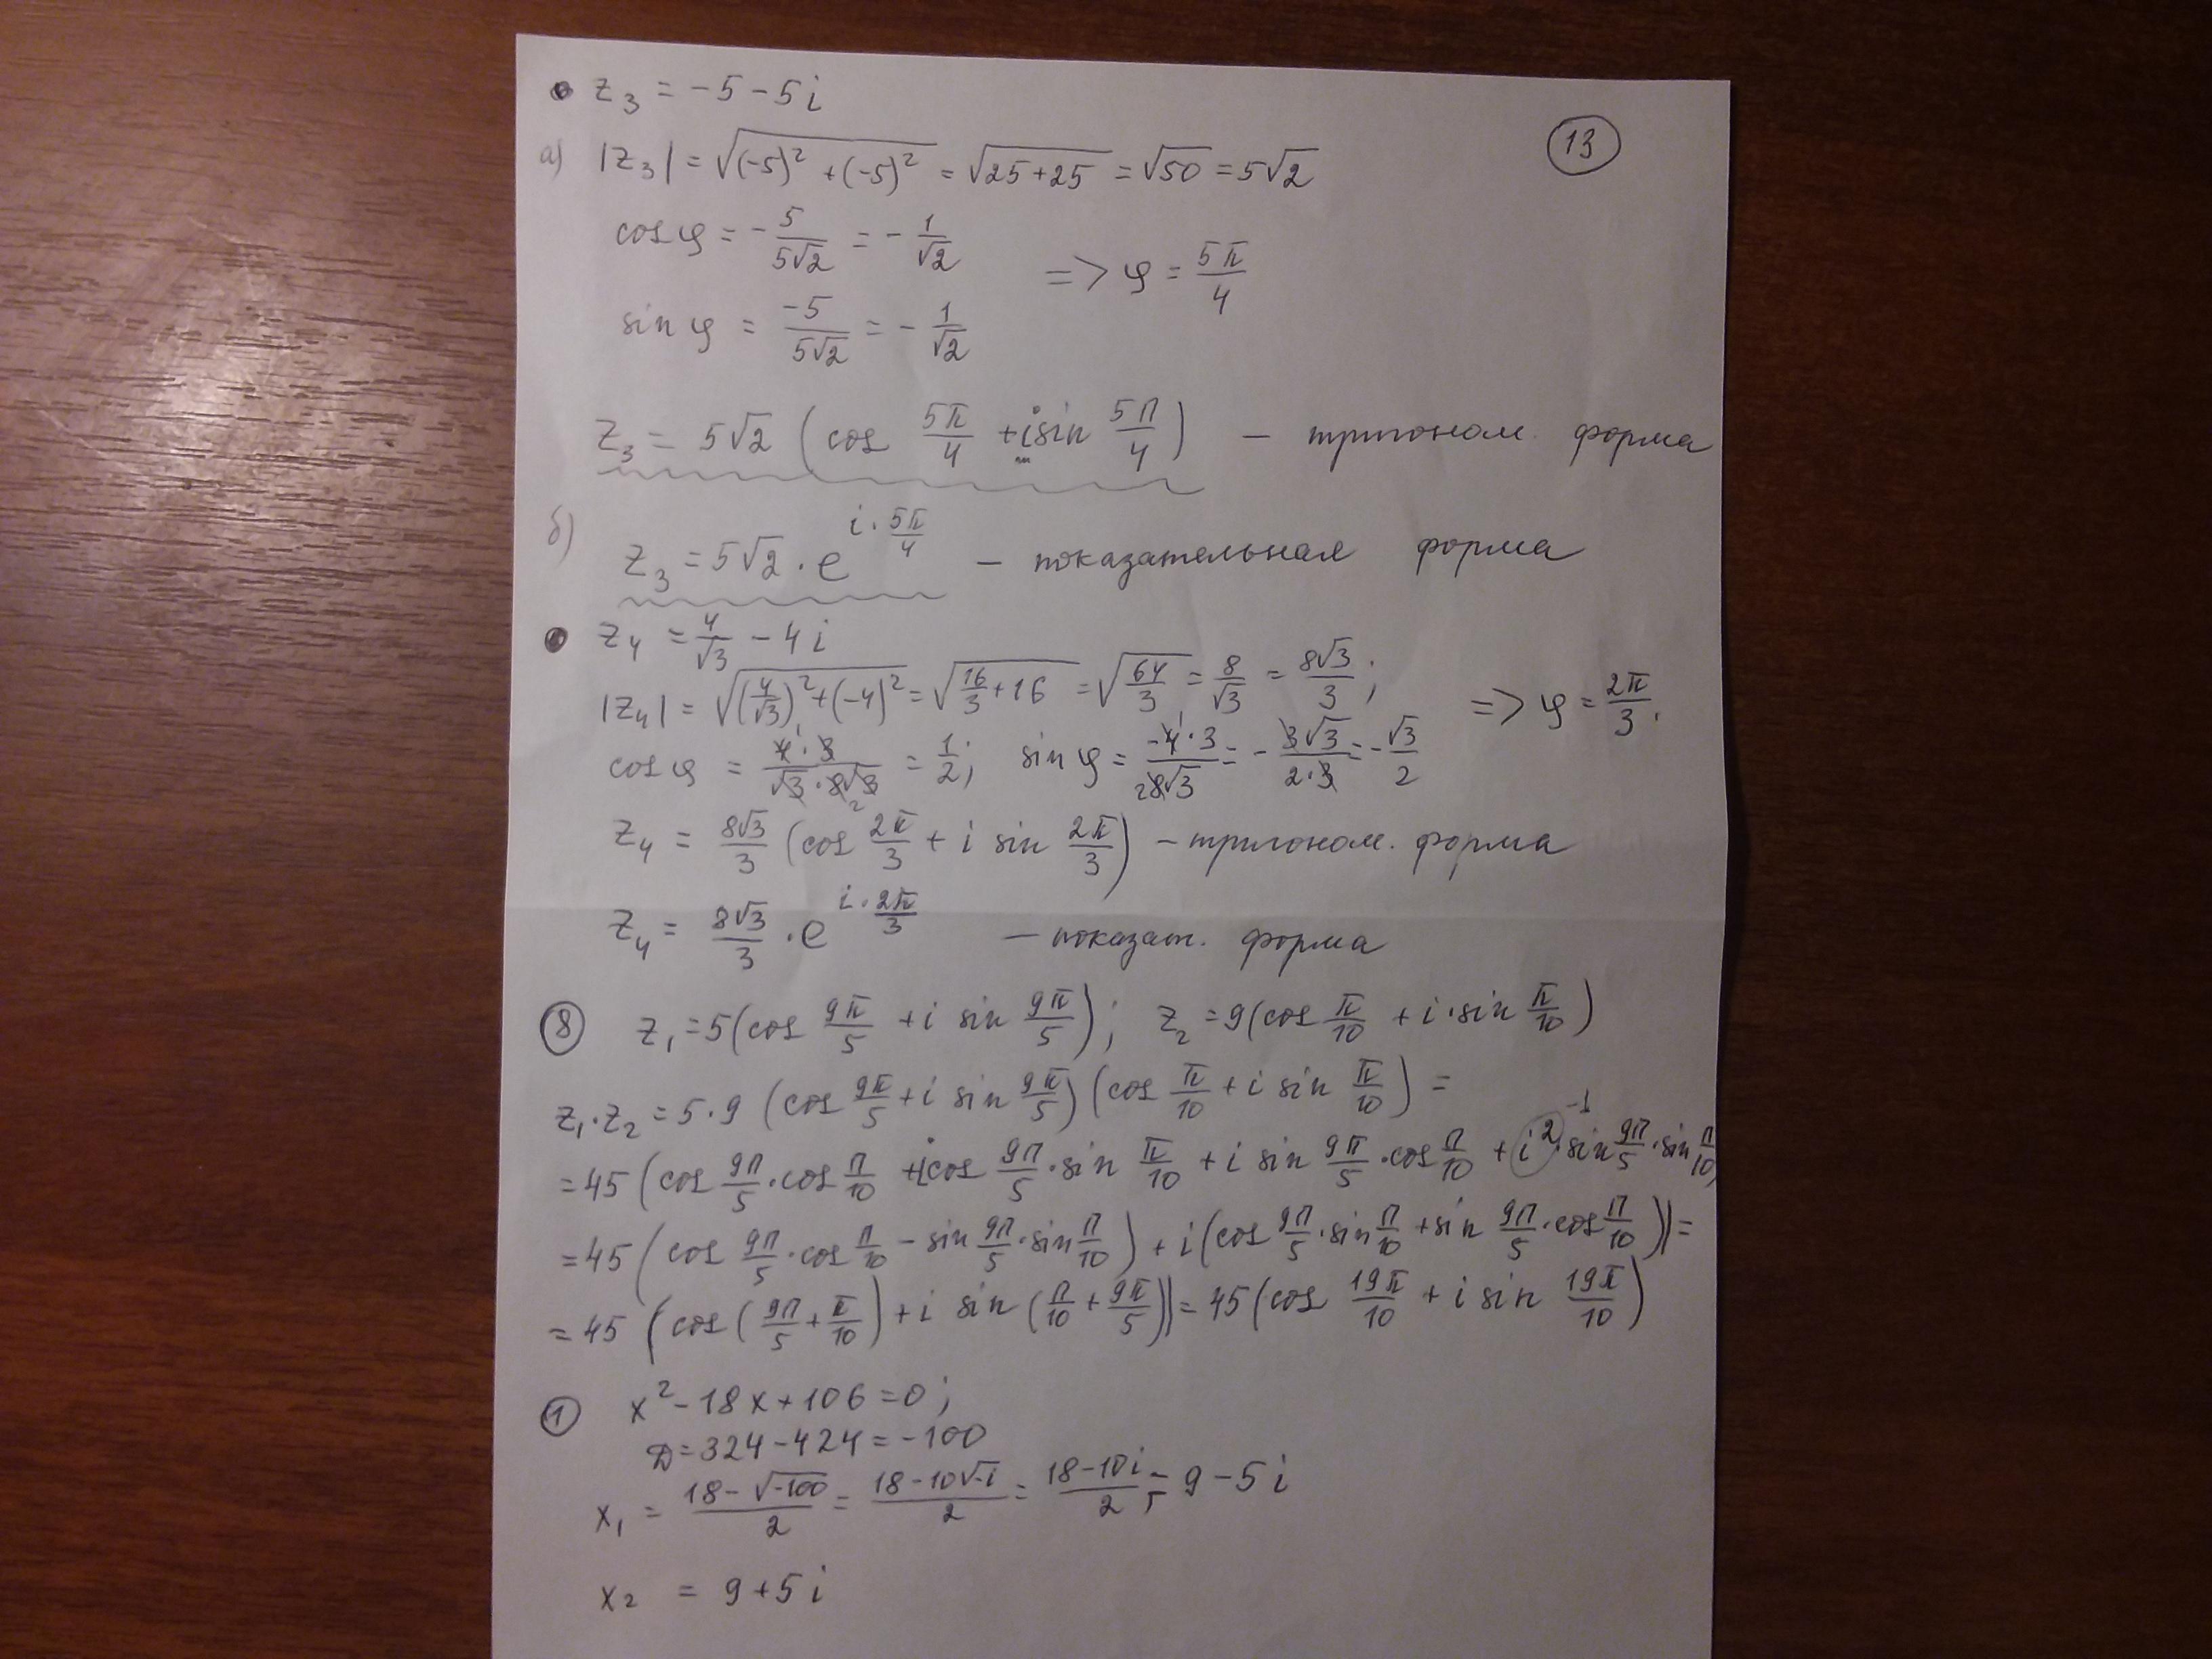 z₃ = -5 - 5i
13
а) |z₃| = √((-5)² + (-5)²) = √(25+25) = √50 = 5√2
cos φ = -5/(5√2) = -1/√2
=> φ = 5π/4
sin φ = -5/(5√2) = -1/√2
z₃ = 5√2 (cos 5π/4 + i sin 5π/4) - тригоном. форма
б) z₃ = 5√2 · e^(i · 5π/4) - показательная форма
z₄ = 4/√3 - 4i
|z₄| = √((4/√3)² + (-4)²) = √(16/3 + 16) = √(64/3) = 8/√3 = 8√3/3; => φ = 2π/3.
cos φ = (4·3)/(√3·8√3) = 1/2; sin φ = (-4·3)/(8√3) = -(3√3)/(2·3) = -√3/2
z₄ = 8√3/3 (cos 2π/3 + i sin 2π/3) - тригоном. форма
z₄ = 8√3/3 · e^(i · 2π/3) - показат. форма
8 z₁ = 5(cos 9π/5 + i sin 9π/5); z₂ = 9(cos π/10 + i · sin π/10)
z₁·z₂ = 5·9 (cos 9π/5 + i sin 9π/5)(cos π/10 + i sin π/10) =
= 45 (cos 9π/5 · cos π/10 + i cos 9π/5 · sin π/10 + i sin 9π/5 · cos π/10 + i² · sin 9π/5 · sin π/10
-1
= 45 (cos 9π/5 · cos π/10 - sin 9π/5 · sin π/10) + i(cos 9π/5 · sin π/10 + sin 9π/5 · cos π/10)) =
= 45 (cos(9π/5 + π/10) + i sin(π/10 + 9π/5)) = 45(cos 19π/10 + i sin 19π/10)
1 x² - 18x + 106 = 0;
D = 324 - 424 = -100
x₁ = (18 - √-100)/2 = (18 - 10√-1)/2 = (18 - 10i)/2 = 9 - 5i
x₂ = 9 + 5i